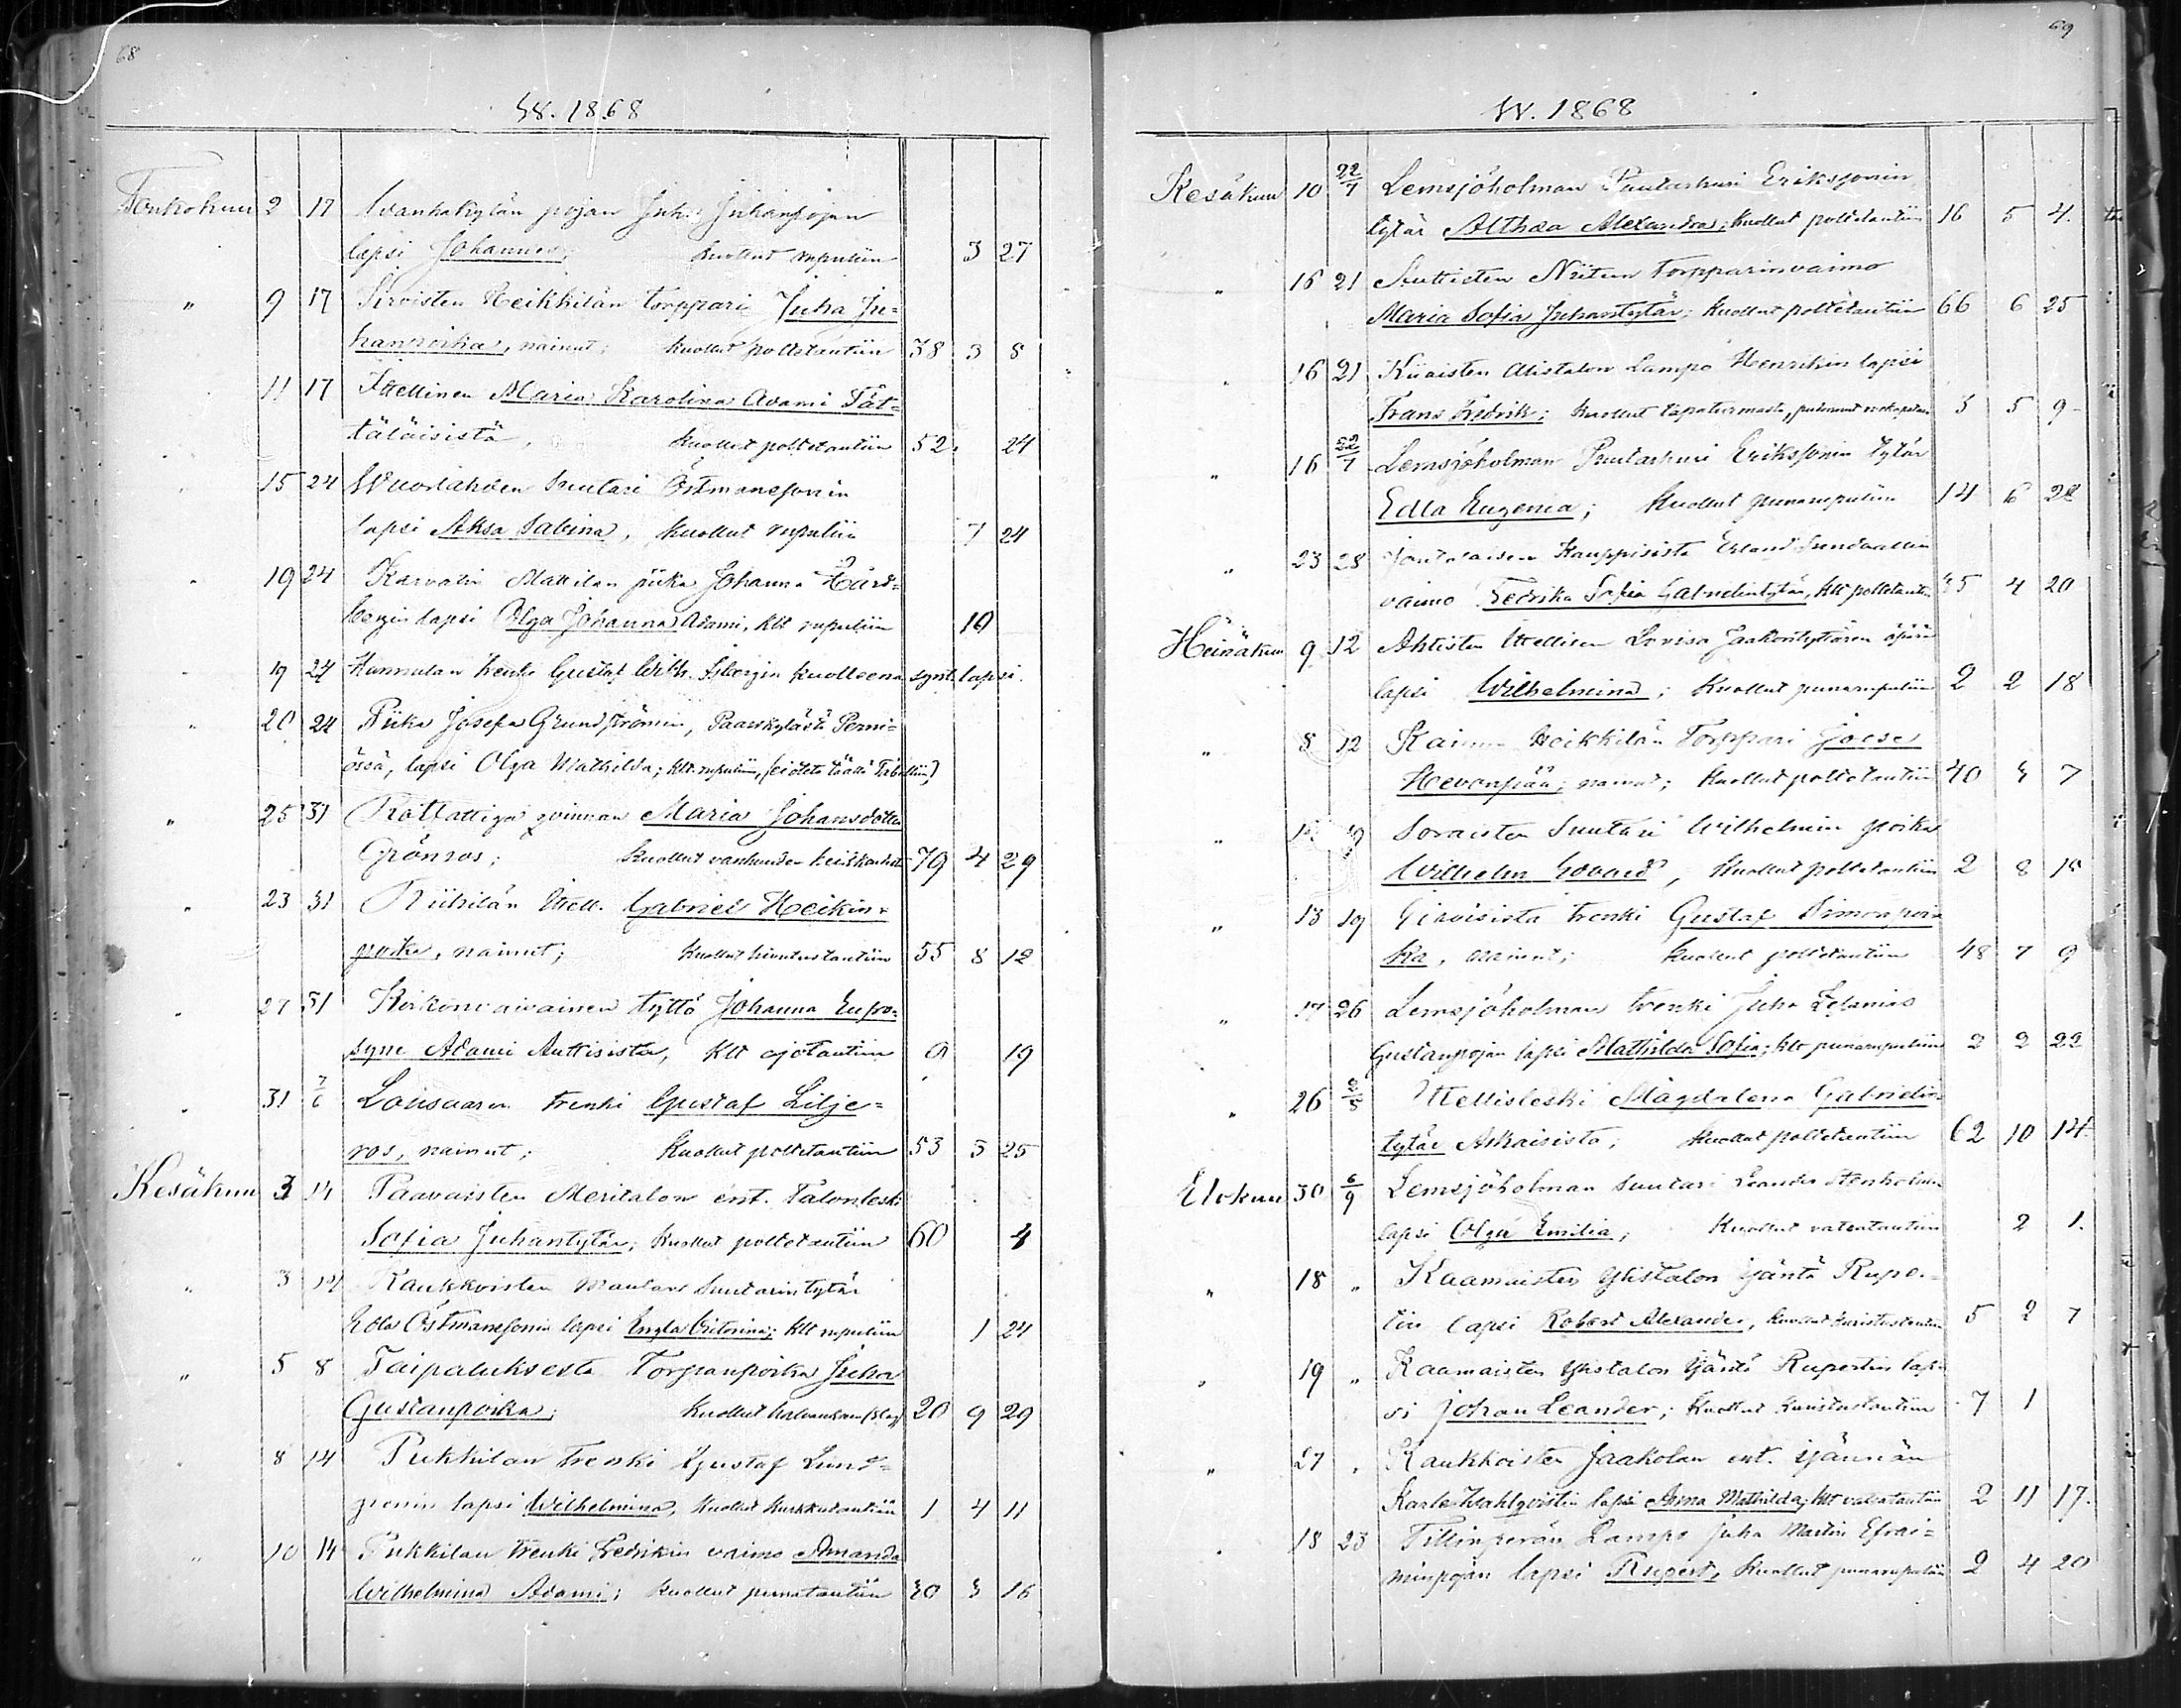 68
W. 1868
Toukokuu 2 17 Wanhakylän pojan Juha Juhanpojan
lapsi Johannes; kuollut rupuliin 3 27
" 9 17 Sirvoisten Heikkilän torppari Juha Ju=
hanpoika, nainut; kuollut polttotautiin 38 3 8
11 17 Itellinen Maria Karolina Adami Tät=
täläisistä, kuollut polttotautiin 52 24
15 24 Wuorlahden suutari Östmanssonin
lapsi Aksa Sabina, kuollut rupuliin 7 24
19 24 Karvatin Mattilan piika Johanna Hård=
bergin lapsi Olga Johanna Adami, klt rupuliin 10
19 24 Hannulan trenki Gustaf Wilh. Sjöbergin kuolleena synt. lapsi.
20 24 Piika Josefa Grundströmin, Paarskylästä Perni=
össä, lapsi Olga Mathilda; klt. rupuliin, (ei oteta täällä Tabelliin)
" 25 31 Rotfattiga qvinnan Maria Johansdotter
Grönros; kuollut vanhuuden heikkoudesta 79 4 29
23 31 Riihilän Itell. Gabriel Heikin=
poika, nainut; kuollut hivutustautiin 55 8 12
27 31 Kirkonvaivainen tyttö Johanna Eupro=
syne Adami Auttisista, klt ajotautiin 9 19
31 7/6 Loisuaren trenki Gustaf Lilje=
ros, nainut; kuollut polttotautiin 53 3 25
Kesäkuu 3 14 Paavaisten Meritalon ent. talonleski
Sofia Juhantytär; kuollut polttotautiin 60 4
" 3 14 Kaukkoisten Mautars Suutarin tytär
Edla Östmanssonin lapsi Engla Vitorina; klt rupuliin 1 24
" 5 8 Taipaluksesta Torpanpoika Juha
Gustaupoika; kuollut halvaukseen (slag) 20 9 29
8 14 Pukkilan trenki Gustaf Lund=
grenin lapsi Wilhelmina, kuollut kurkkutautiin 1 4 11
" 10 14 Pukkilan trenki Fredrikin vaimo Amanda
Wilhelmina Adami; kuollut punatautiin 30 3 16
69
W. 1868
Kesäkuu 10 22/7 Lemsjöholman Puutarhuri Erikssonin
tytär Althea Alexandra; kuollut polttotautiin 16 5 4.
" 16 21 Auttisten Niitun Torpparinvaimo
Maria Sofia Juhantytär; kuollut polttotautiin 66 6 25
16 21 Kiiaisten Alistalon Lampo Henrikin lapsi
Frans Fredrik; kuollut tapaturmasta, 3 5 9
" 16 22/7 Lemsjöholman Puutarhuri Erikssonin tytär
Edla Eugenia; kuollut punarupuliin 14 6 28
" 23 28 Kauppisista Erland Sundvallin
vaimo Fedrika Sofia Gabrielintytär, klt polttotautiin 45 4 20
Heinäkuu 9 12 Ahtisten Itellisen Lovisa Jaakontyttären äpärä
lapsi Wilhelmina; kuollut punarupuliin 2 2 18
" 8 12 Kaimon Heikkilän Torppari Joose
Hevonpää; nainut; kuollut polttotautiin 40 4 7
" 19 Soraisten Suutari Wilhelmin poika
Wilhelm Edvard, kuollut polttotautiin 2 8 15
" 13 19 Girvisistä trenki Gustaf Simonpoi=
ka, nainut; kuollut polttotautiin 48 7 9
" 17 26 Lemsjöholman trenki Juha Zefanias
Gustaupojan lapsi Mathilda Sofia; klt punarupuliin 2 2 22
" 26 2/8 Itellisleski Magdalena Gabrielin=
tytär Askaisista; kuollut polttotautiin 62 10 14.
Elokuu 30 6/9 Lemsjöholman suutari Leander Stenholmin
lapsi Olga Emilia; kuollut vatsatautiin 2 1.
" 18 " Kaamaisten Ylistalon Isäntä Ruper=
tin lapsi Robert Alexander, kuollut kuristustautiin 5 2 7
" 19 " Kaamaisten Ylistalon Isäntä Rupertin lap=
si Johan Leander; kuollut kuristustautiin 7 1
" 27 " Kaukkoisten Jaakolan ent. isännän
Karle Wahlqvistin lapsi Anna Mathilda; klt vatsatautiin 2 11 17.
" 18 23 Tillinperän Lampo Juha Martin Efrai=
minpojan lapsi Rupert, kuollut punarupuliin 2 4 20